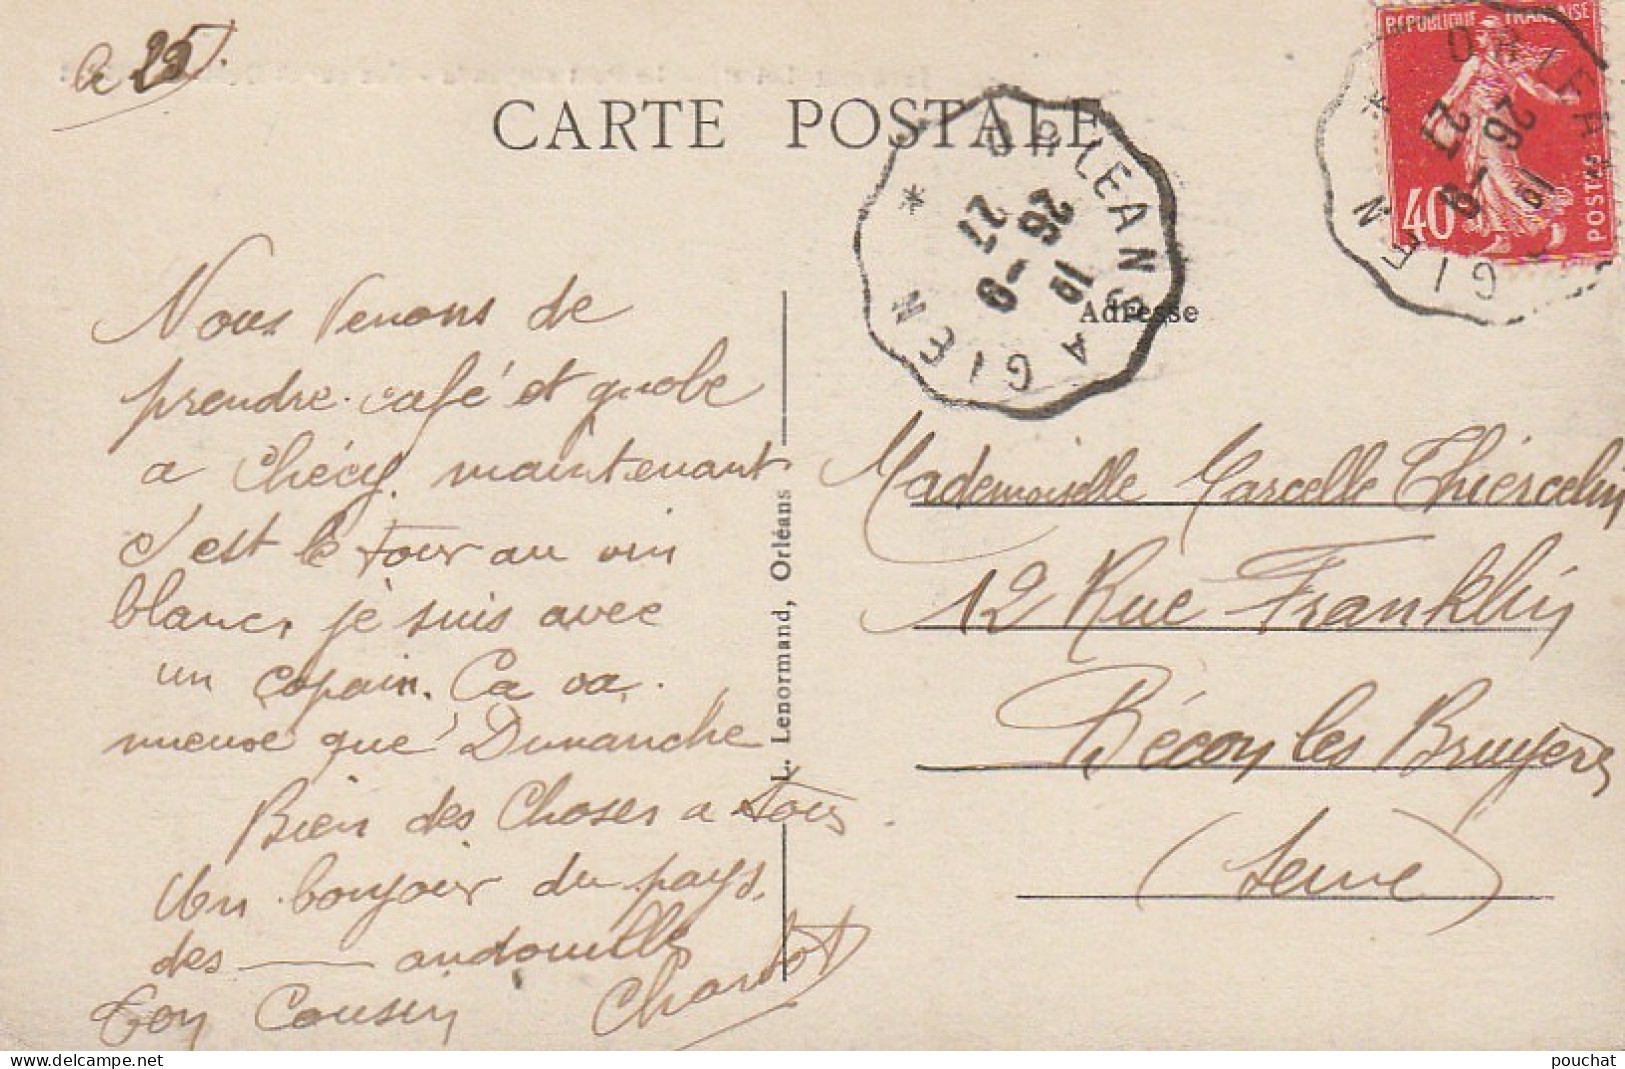 a 25
CARTE POSTALE
RÉPUBLIQUE FRANÇAISE
POSTES
40
ORLEANS A GIEN
19
26 - 9
27
ORLEANS A GIEN
19
26 - 9
27
Adresse
L. Lenormand, Orléans
Nous venons de
prendre café et gnole
a Chécy, maintenant
c'est le tour au vin
blanc, je suis avec
un copain. Ca va
mieux que Dimanche
Bien des Choses a tous
Un bonjour du pays
des — andouilles
Ton Cousin Charlot
Mademoiselle Marcelle Thiercelin
12 Rue Franklin
Bécon les Bruyères
(Seine)
pouchat